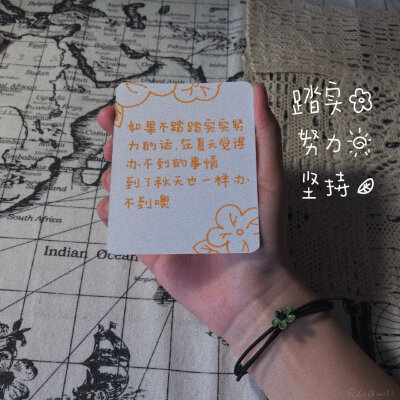 如果不踏踏实实努
力的话，在夏天觉得
办不到的事情
到了秋天也一样办
不到噢
踏实
努力
坚持
Sudan
Ethiopia
Somalia
Tanzania
South Africa
Indian Ocean